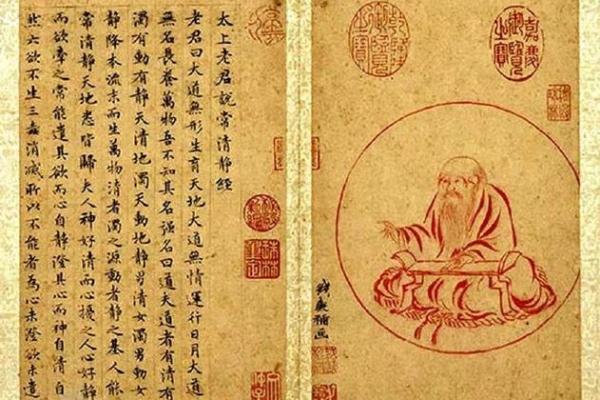 嘉慶御覽之寶
乾隆御覽之寶
太上老君說常清静經
老君曰大道無形生育天地大道無情運行日月大道
無名長養萬物吾不知其名强名曰道夫道者有清有
濁有動有静天清地濁天動地静男清女濁男動女
静降本流末而生萬物清者濁之源動者静之基人能
常清静天地悉皆歸夫人神好清而心擾之人心好静
而欲牽之常能遣其欲而心自静澄其心而神自清自
然六欲不生三毒消滅所以不能者為心未澄欲未遣